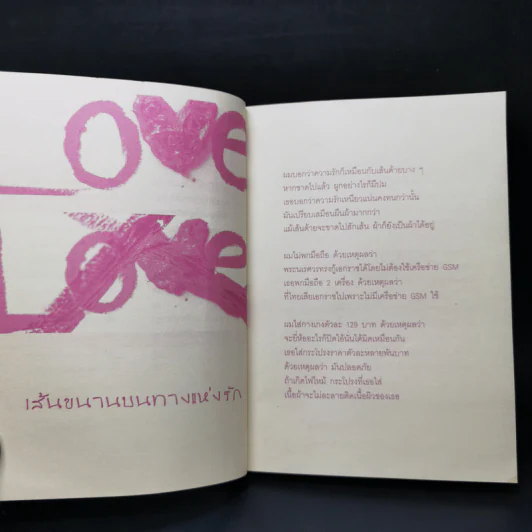 Love
Love
เส้นขนานบนทางแห่งรัก
ผมบอกว่าความรักก็เหมือนกับเส้นด้ายบาง ๆ
หากขาดไปแล้ว ผูกอย่างไรก็มีปม
เธอบอกว่าความรักเหนียวแน่นคงทนกว่านั้น
มันเปรียบเสมือนผืนผ้ามากกว่า
แม้เส้นด้ายจะขาดไปสักเส้น ผ้าก็ยังเป็นผ้าได้อยู่
ผมไม่พกมือถือ ด้วยเหตุผลว่า
พระนเรศวรทรงกู้เอกราชได้โดยไม่ต้องใช้เครือข่าย GSM
เธอพกมือถือ 2 เครื่อง ด้วยเหตุผลว่า
ที่ไทยเสียเอกราชไปเพราะไม่มีเครือข่าย GSM ใช้
ผมใส่กางเกงตัวละ 129 บาท ด้วยเหตุผลว่า
จะยี่ห้ออะไรก็ปิดไอ้นั่นได้มิดเหมือนกัน
เธอใส่กระโปรงราคาตัวละหลายพันบาท
ด้วยเหตุผลว่า มันปลอดภัย
ถ้าเกิดไฟไหม้ กระโปรงที่เธอใส่
เนื้อผ้าจะไม่ละลายติดเนื้อผิวของเธอ